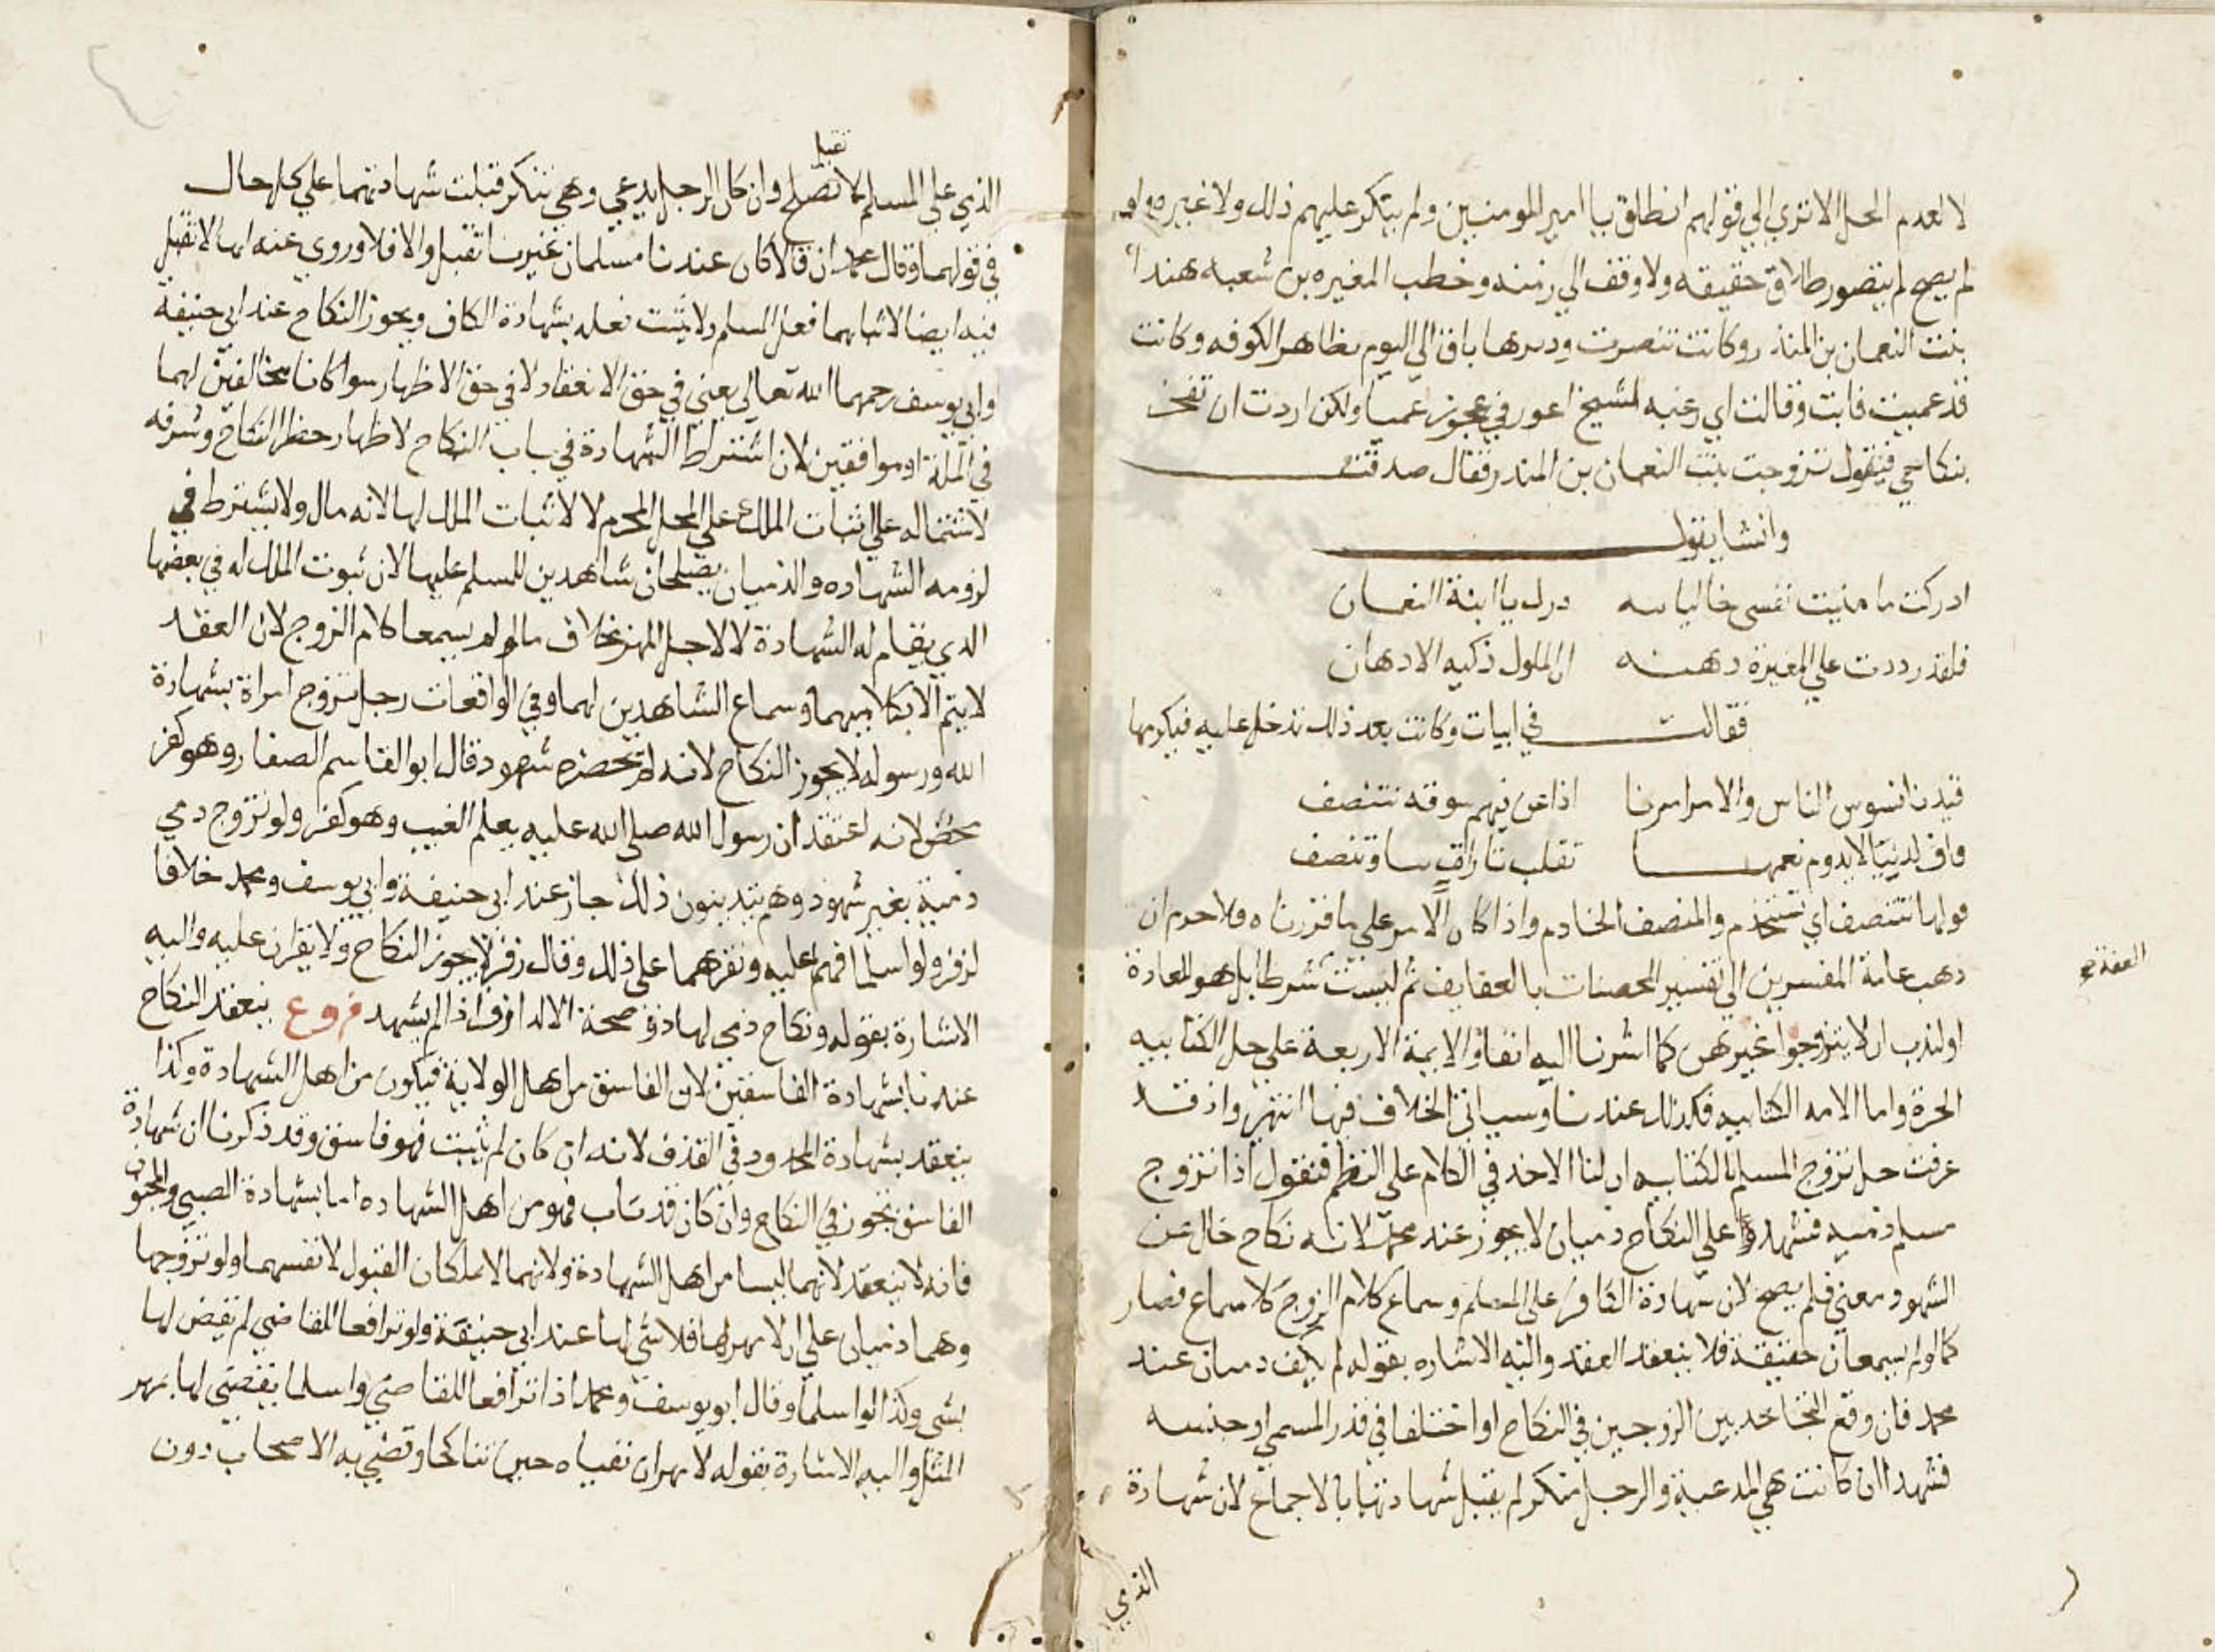 لا لعدم الحل الا تري الي قولهم انطلق يا امير المومنين ولم ينكر عليهم ذلك ولا غيره ولو
لم يصح لم يتصور طلاق حقيقه ولا وقف الي زمنه وخطب المغيره بن شعبه هندا
بنت النعمان بن المنذر وكانت تنصرت وديرها باق الي اليوم بظاهر الكوفه وكانت
قد عميت فابت وقالت اي رغبه لشيخ اعور في عجوز عميا ولكن اردت ان تفخر
بنكاحي فيقول تزوجت بنت النعمان بن المنذر فقال صدقت
وانشا يقول
ادركت ما منيت نفسي خاليا درك يا ابنة النعمان
فلقد رددت علي المغيرة دهنه ان الملوك ذكيه الادهان
فقالت في ابيات وكانت بعد ذلك تدخل عليه فيكرمها
فبينا نسوس الناس والامر امرنا اذا نحن فيهم سوقه نتنصف
فاف لدنيا لا يدوم نعيمها تقلب تارات بنا وتنصف
قولها نتنصف اي نستخدم والمنصف الخادم واذا كان الامر علي ما قررناه فلا حرم ان
ذهب عامة المفسرين الي تفسير المحصنات بالعفايف ثم ليست شرطا بل هو للعادة
او لندب ان لا يتزوجوا غيرهن كما اشرنا اليه اتفاق الايمة الاربعة علي حل الكتابيه
الحرة واما الامه الكتابيه فكذلك عندنا وسياتي الخلاف فيها انتهي واذ قد
عرفت حل تزوج المسلم بالكتابيه ان لنا الاخذ في الكلام علي النظم فنقول اذا تزوج
مسلم ذميه فشهد علي النكاح ذميان لا يجوز عند محمد لانه نكاح خال عن
الشهود معني فلم يصح لان شهادة الكافر علي المسلم وسماع كلام الزوج كلا سماع فصار
كما لو لم يسمعان حقيقة فلا ينعقد العقد واليه الاشاره بقوله لم يكف دميان عند
محمد فان وقع التجاحد بين الزوجين في النكاح او اختلفا في قدر المسمي او جنسه
فشهدا ان كانت هي المدعية والرجل منكر لم يقبل شهادتهما بالاجماع لان شهادة
الذمي
العقد
تقبل
الذي علي المسلم لا تصلح وان كان الرجل يدعي وهي تنكر قبلت شهادتهما علي كل حال
في قولهما وقال محمد ان قالا كان عندنا مسلمان غيرنا تقبل والا فلا وروي عنه انها لا تقبل
فيه ايضا لاثباتهما فعل المسلم ولا يثبت فعله بشهادة الكافر ويجوز النكاح عند ابي حنيفة
وابي يوسف رحمهما الله تعالي يعني في حق الانعقاد لا في حق الاظهار سوا كانا مخالفين لهما
في الملة او موافقين لان اشتراط الشهادة في باب النكاح لاظهار خطر النكاح وشرفه
لاشتماله علي اثبات الملك علي المحل المحرم لا لاثبات الملك لها لانه مال ولا يشترط في
لزومه الشهاده والذميان يصلحان شاهدين للمسلم عليها لان ثبوت الملك له في بعضها
الذي يقام له الشهادة لا لاجل المهر بخلاف ما لو لم يسمعا كلام الزوج لان العقد
لا يتم الا بكلاميهما وسماع الشاهدين لهما وفي الواقعات رجل تزوج امراة بشهادة
الله ورسوله لا يجوز النكاح لانه لم تحضره شهود قال ابو القاسم الصفار وهو كفر
محض لانه اعتقد ان رسول الله صلي الله عليه يعلم الغيب وهو كفر ولو تزوج دمي
ذمية بغير شهود وهم يتدينون ذلك جاز عند ابي حنيفة وابي يوسف ومحمد خلافا
لزفر ولو اسلما فهم عليه ونقرهما علي ذلك وقال زفر لا يجوز النكاح ولا يقران عليه واليه
الاشارة بقوله ونكاح ذمي لها دفي صحة الا لدا زفر اذا لم يشهد فروع ينعقد النكاح
عندنا بشهادة الفاسقين لان الفاسق من اهل الولاية فيكون من اهل الشهادة وكذا
ينعقد بشهادة المحدود في القذف لانه ان كان لم يثبت فهو فاسق وقد ذكرنا ان شهادة
الفاسق تجوز في النكاح وان كان قد تاب فهو من اهل الشهاده اما بشهادة الصبي والمجنون
فانه لا ينعقد لانهما ليسا من اهل الشهادة ولانهما لا يملكان القبول لانفسهما ولو تزوجها
وهما ذميان علي ان لا مهر لها فلا شي لها عند ابي حنيفة ولو ترافعا للقاضي لم يقض لها
بشي وكذا لو اسلما وقال ابو يوسف ومحمد اذا ترافعا للقاضي واسلما يقضي لها بمهر
المثل واليه الاشارة بقوله لا مهر ان نفياه حين تناكحا وقضي به الاصحاب دون